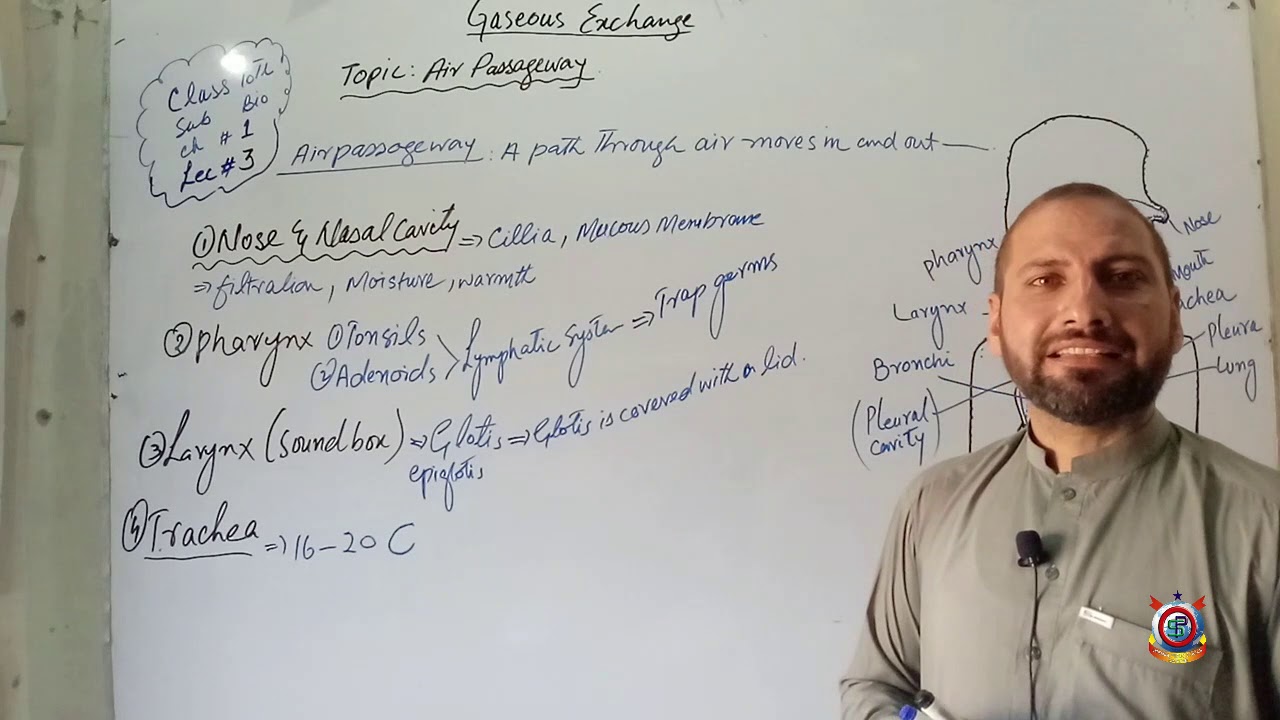 Gaseous Exchange
Topic: Air Passageway
Class 10th
Sub Bio
ch # 1
Lec # 3
Airpassageway : A path Through air moves in and out
① Nose & Nasal Cavity ⇒ Cillia, Mucous Membrane
⇒ filtration, Moisture, warmth
② Pharynx ① Tonsils
② Adenoids
Lymphatic System ⇒ Trap germs
③ Larynx (Soundbox) ⇒ Glotis ⇒ Glotis is covered with a lid.
epiglotis
④ Trachea ⇒ 16-20 C
Nose
pharynx
Mouth
Larynx
achea
Pleura
Bronchi
Lung
(Pleural
cavity)